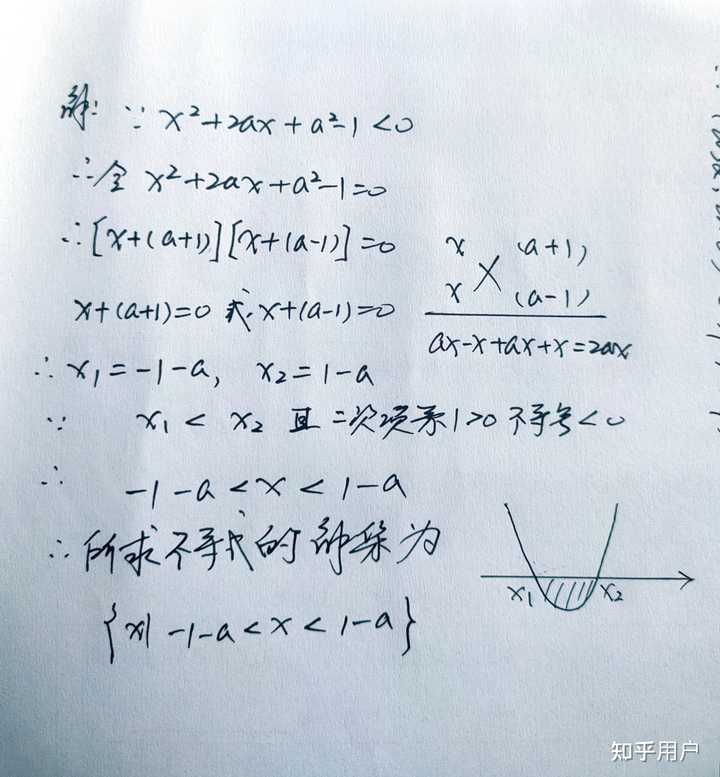 解: ∵ x²+2ax+a²-1<0
∴令 x²+2ax+a²-1=0
∴[x+(a+1)][x+(a-1)]=0
x (a+1)
x (a-1)
ax-x+ax+x=2ax
x+(a+1)=0 或 x+(a-1)=0
∴ x₁=-1-a, x₂=1-a
∵ x₁<x₂ 且二次项系1>0 不等号<0
∴ -1-a<x<1-a
∴所求不等式的解集为
{x|-1-a<x<1-a}
x₁ x₂
知乎用户